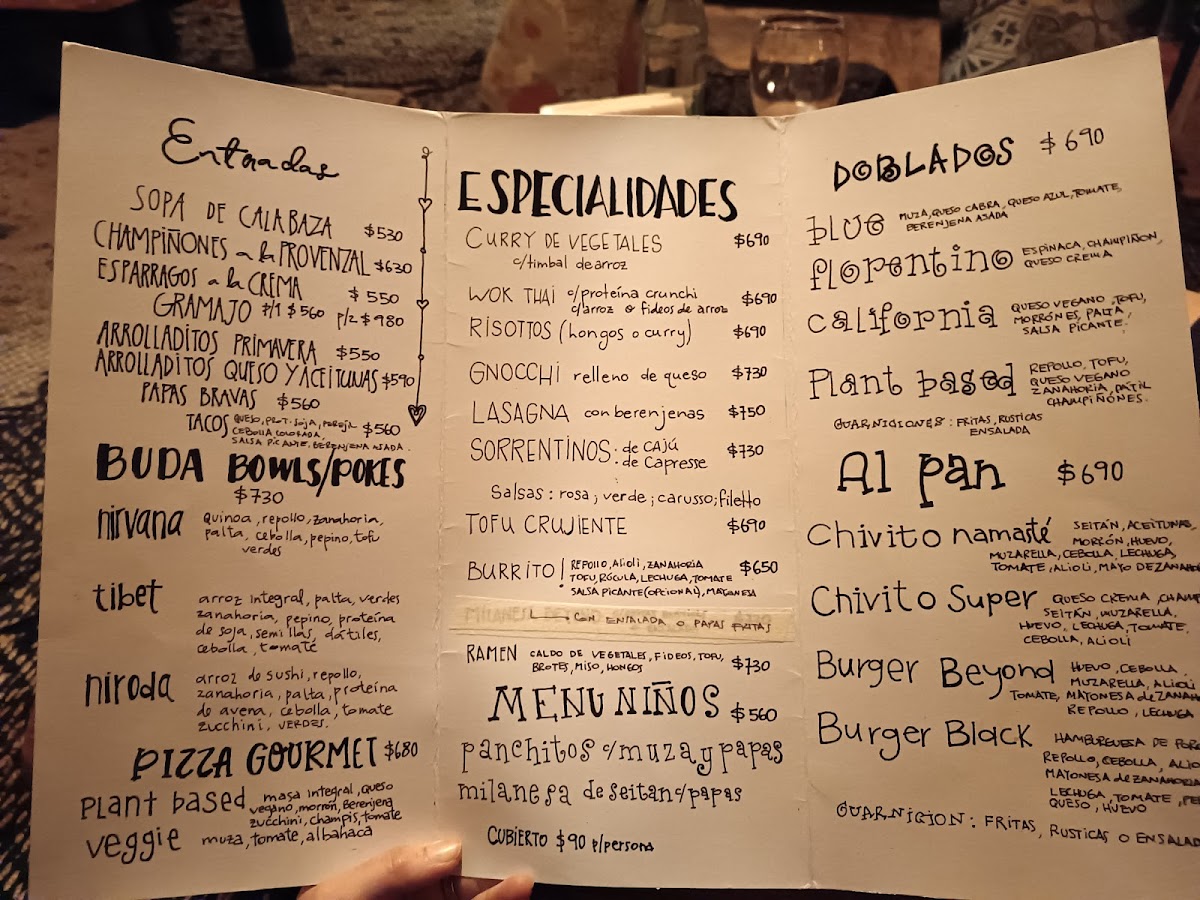 Entradas
SOPA DE CALABAZA $530
CHAMPIÑONES a la PROVENZAL $630
ESPÁRRAGOS a la CREMA $550
GRAMAJO P/1 $560 p/2 $980
ARROLLADITOS PRIMAVERA $550
ARROLLADITOS QUESO Y ACEITUNAS $590
PAPAS BRAVAS $560
TACOS QUESO, PROT. SOJA, PEREJIL $560
CEBOLLA COLORADA,
SALSA PICANTE, BERENJENA ASADA.
BUDA BOWLS/POKES
$730
nirvana quinoa, repollo, zanahoria,
palta, cebolla, pepino, tofu
verdes
tibet arroz integral, palta, verdes
zanahoria, pepino, proteína
de soja, semillas, dátiles,
cebolla, tomate
niroda arroz de sushi, repollo,
zanahoria, palta, proteína
de avena, cebolla, tomate
zucchini, VERDES.
PIZZA GOURMET $680
PLANT based masa integral, queso
vegano, morrón, Berenjena
zucchini, champis, tomate
veggie muza, tomate, albahaca
ESPECIALIDADES
CURRY DE VEGETALES $690
c/timbal de arroz
WOK THAI c/proteína crunchi $690
c/arroz o fideos de arroz
RISOTTOS (hongos o curry) $690
GNOCCHI relleno de queso $730
LASAGNA con berenjenas $750
SORRENTINOS: de CAJÚ $730
de Capresse
Salsas: rosa; verde; carusso; filetto
TOFU CRUJIENTE $690
BURRITO! REPOLLO, ALIOLI, ZANAHORIA $650
TOFU, RÚCULA, LECHUGA, TOMATE
SALSA PICANTE (OPCIONAL), MAYONESA
CON ENSALADA O PAPAS FRITAS
RAMEN CALDO DE VEGETALES, FIDEOS, TOFU, $730
BROTES, MISO, HONGOS
MENU NIÑOS $560
panchitos c/muza y papas
milanesa de seitan c/papas
CUBIERTO $90 p/persona
DOBLADOS $690
blue MUZA, QUESO CABRA, QUESO AZUL, TOMATE,
BERENJENA ASADA
florentino ESPINACA, CHAMPIÑON,
QUESO CREMA
california QUESO VEGANO, TOFU,
MORRÓNES, PALTA,
SALSA PICANTE.
Plant based REPOLLO, TOFU,
QUESO VEGANO
ZANAHORIA, DÁTIL
CHAMPIÑONES.
GUARNICIONES: FRITAS, RUSTICAS
ENSALADA
Al pan $690
Chivito namasté SEITÁN, ACEITUNAS,
MORRÓN, HUEVO,
MUZARELLA, CEBOLLA, LECHUGA,
TOMATE, ALIOLI, MAYO DE ZANAHO
Chivito Super QUESO CREMA, CHAMP
SEITÁN, MUZARELLA,
HUEVO, LECHUGA, TOMATE,
CEBOLLA, ALIOLI
Burger Beyond HUEVO, CEBOLLA,
MUZARELLA, ALIOLI
TOMATE, MAYONESA de ZANAHO
REPOLLO, LECHUGA
Burger Black HAMBURGUESA DE POR
REPOLLO, CEBOLLA, ALIO
MAYONESA de ZANAHORIA
LECHUGA, TOMATE, PE
QUESO, HUEVO
GUARNICION: FRITAS, RUSTICAS O ENSALAD